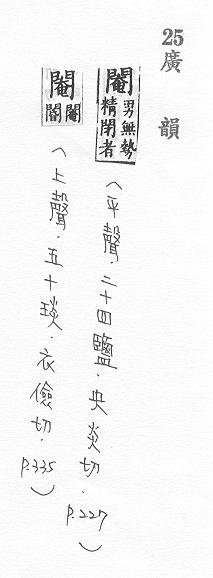 25廣韻
閹男無勢精閉者(平聲.二十四鹽.央炎切.P.227)
閹閹閽(上聲.五十琰.衣儉切.P.335)